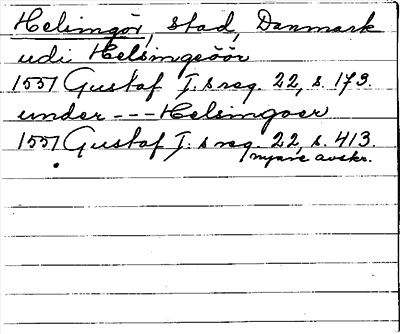 Helsingör, stad, Danmark
udi Helsingeöör
1551 Gustaf I:s reg. 22, s. 173.
under --- Helsingoer
1551 Gustaf I:s reg. 22, s. 413.
nyare avskr.